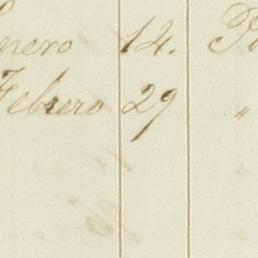 Enero 14. P
Febrero 29 "